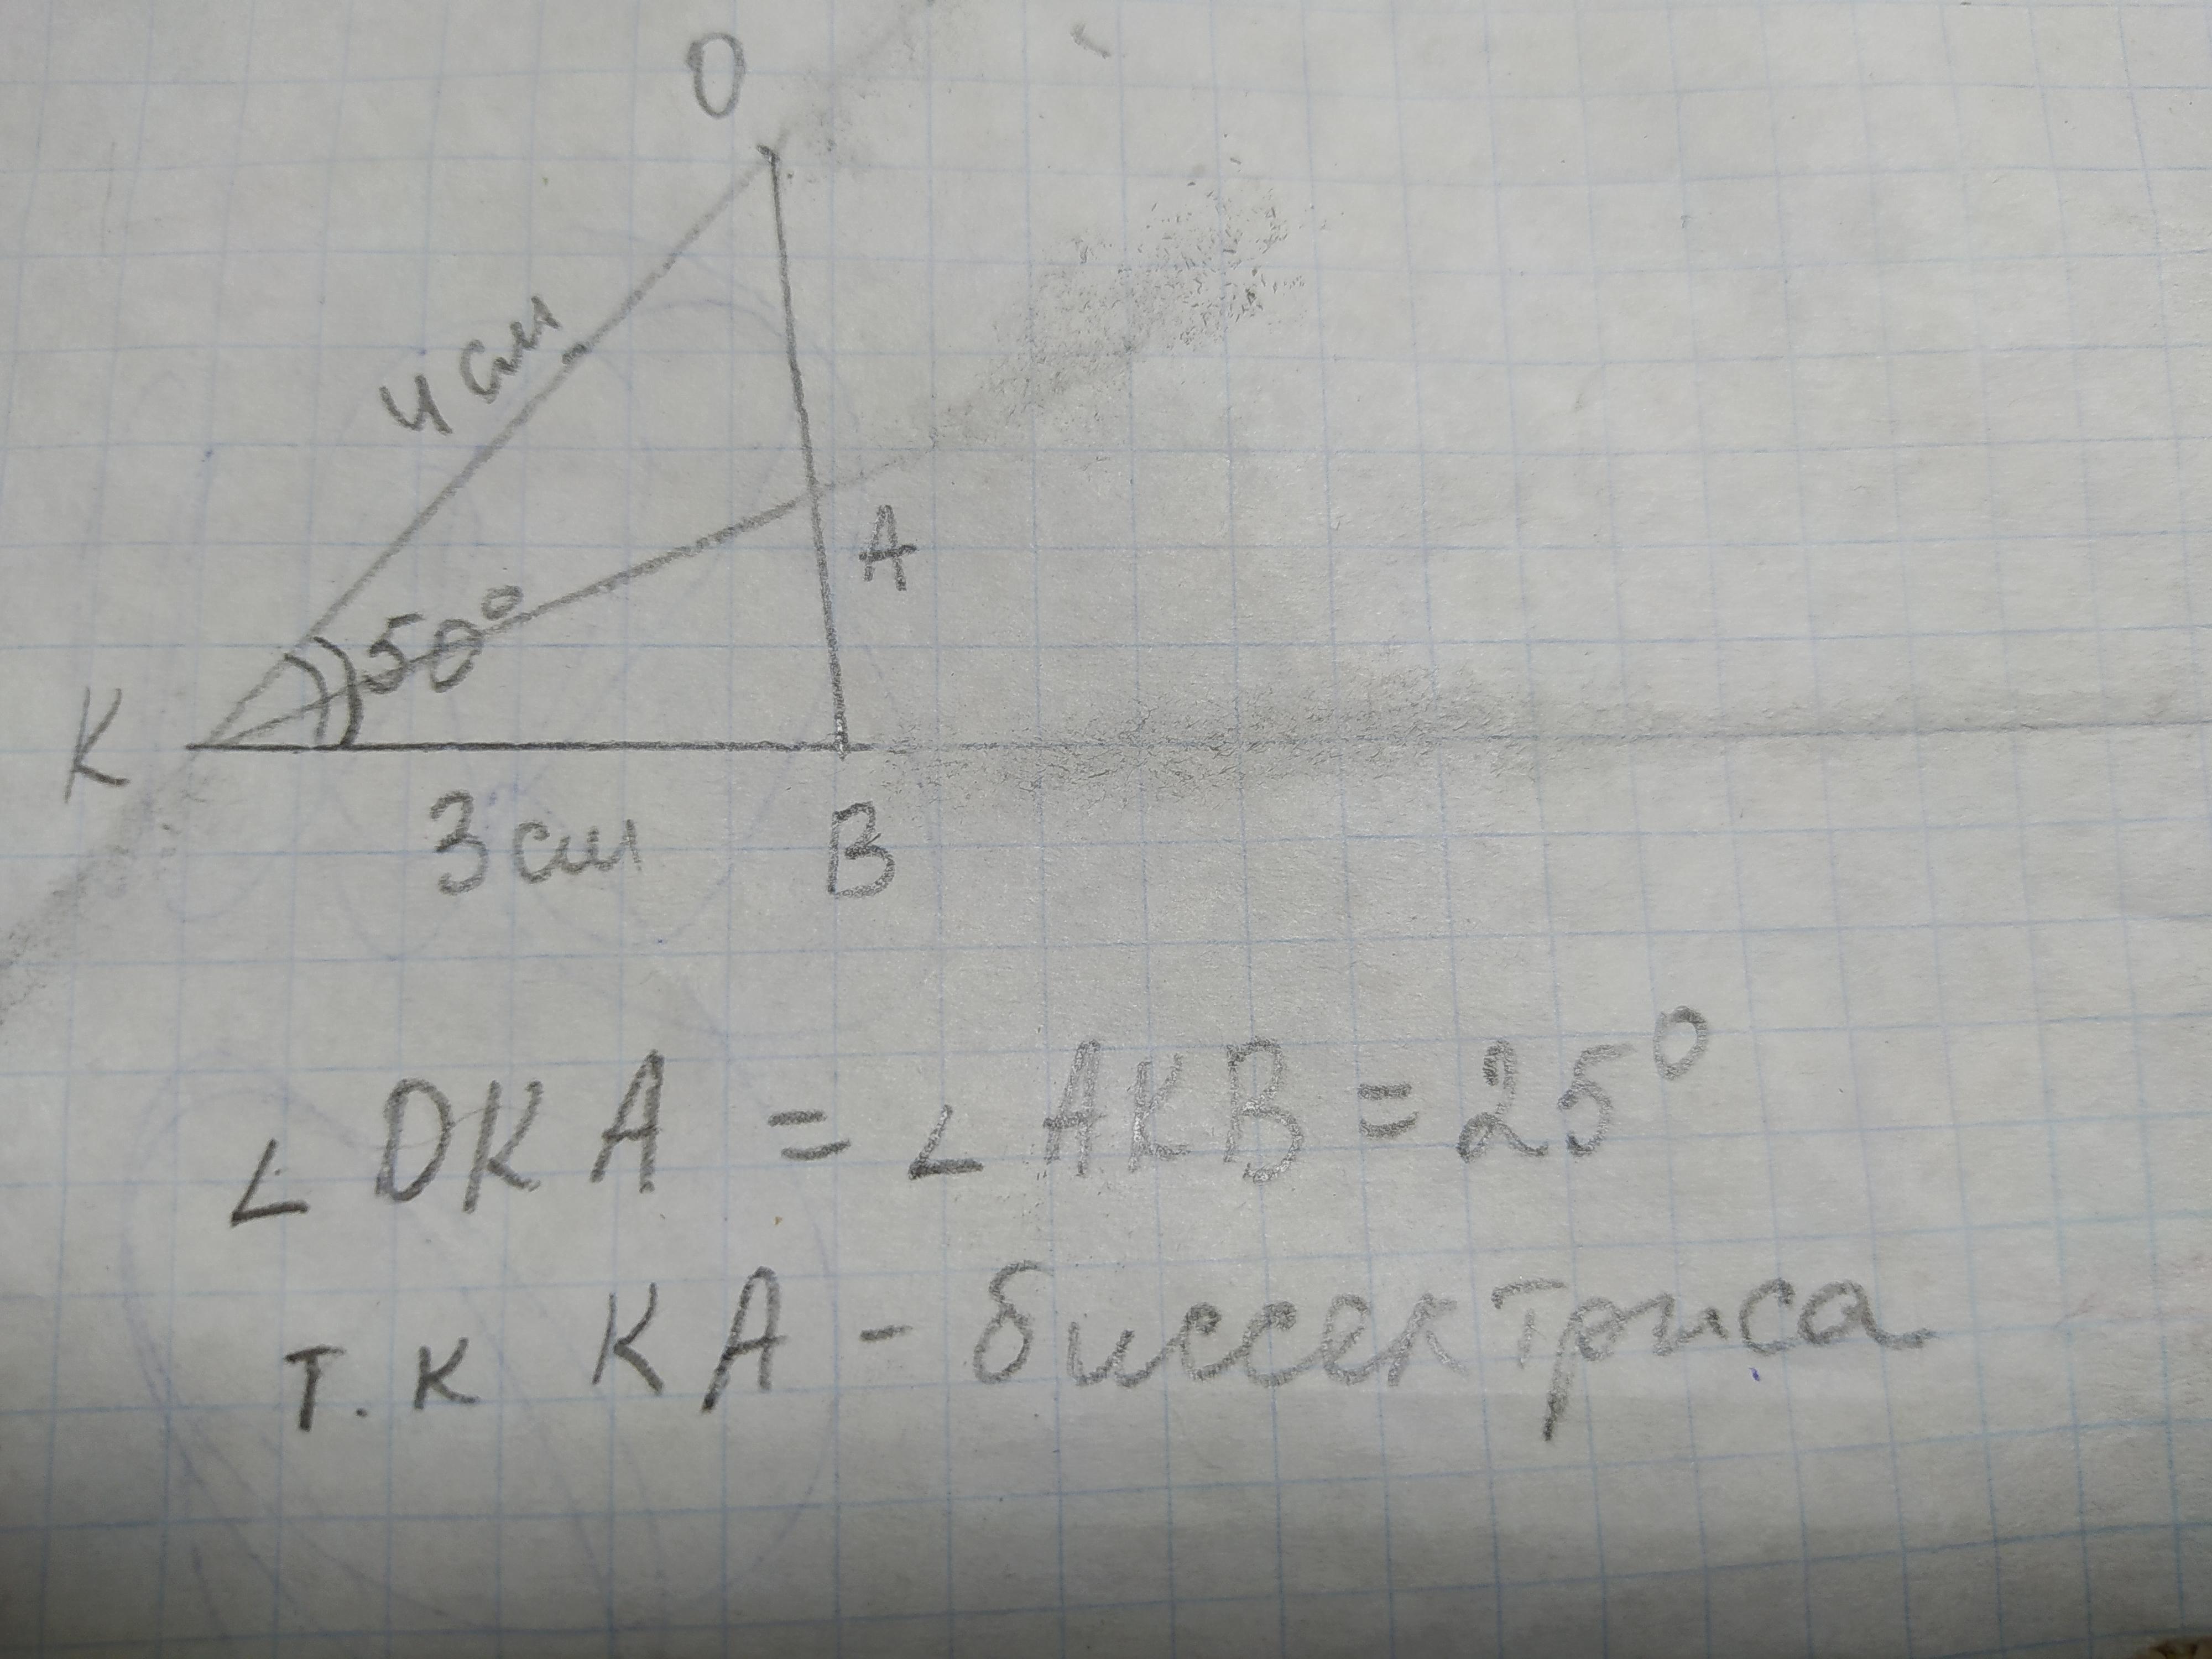 O
4 см
A
50°
K
3 см
B
∠ DKA = ∠ AKB = 25°
т.к KA - биссектриса